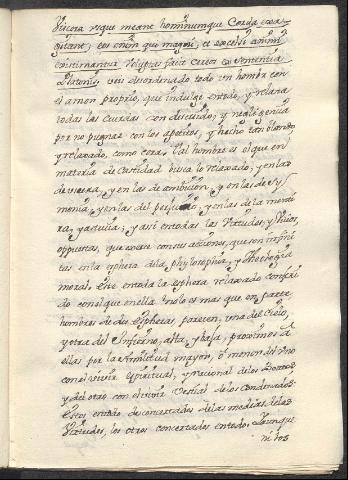 Viscera usque meant hominumque Corda
gitant; eos enim qui magni, et excelsi animi
existimantur Voluptas facit cereos ex sententia
Platonis, veis desordenado todo un hombre con
el amor proprio, que indulge entodo, y relaxa
todas las Cuerdas con descuido; y negligencia
por no pugnar con los apetitos, y hecho tan blando
y relaxado, como cera. tal hombre es el que en
materia de Castidad busca lo relaxado; y en las
de vsura, y en las de ambicion, y en las de sy
monia, y en las del perjurio, y en las de la menti
ra, y asi en todas las Virtudes, y Vicios,
oppuestos, que son infini
tas en la esphera dela phylosophia, y theologia
moral. Este en toda la esphera relaxado
do con el que en ella no lo es mas que en parte
hombres de dos Espheras parecen, una del Cielo,
y otra del Infierno, alta, y baja, proximos à
ellas por la similitud mayor, ò menor del uno
con el vivir espiritual, y racional de los
y del otro con el vivir bestial de los Condenados.
Estos en todo desconcertados de las medidas delas
Virtudes, los otros concertados en todo. Y aunque
ni los